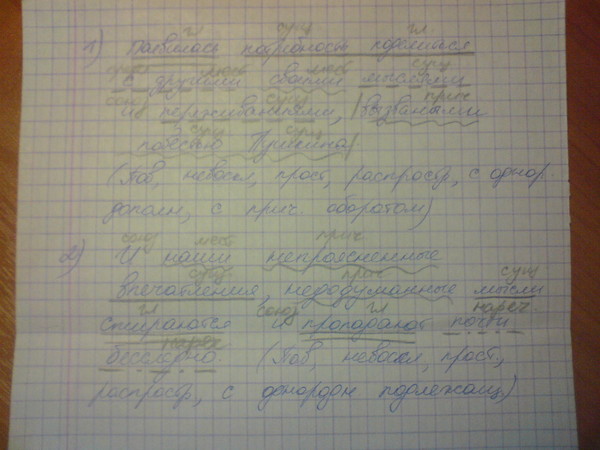 гл. сущ гл.
1) Появилась потребность поделиться
предл сущ мест сущ
с друзьями своими мыслями
союз сущ прич
и переживаниями, |вызваными
сущ сущ
повестью Пушкина|
(Пов, невоскл, прост, распростр, с однор.
дополн, с прич. оборотом)
союз мест прич
2) И наши непроясненные
сущ прич сущ
впечатления, недодуманные мысли
гл союз гл нареч.
стираются и пропадают почти
нареч
бесследно. (Пов, невоскл, прост.,
распростр, с однородн подлежащ)